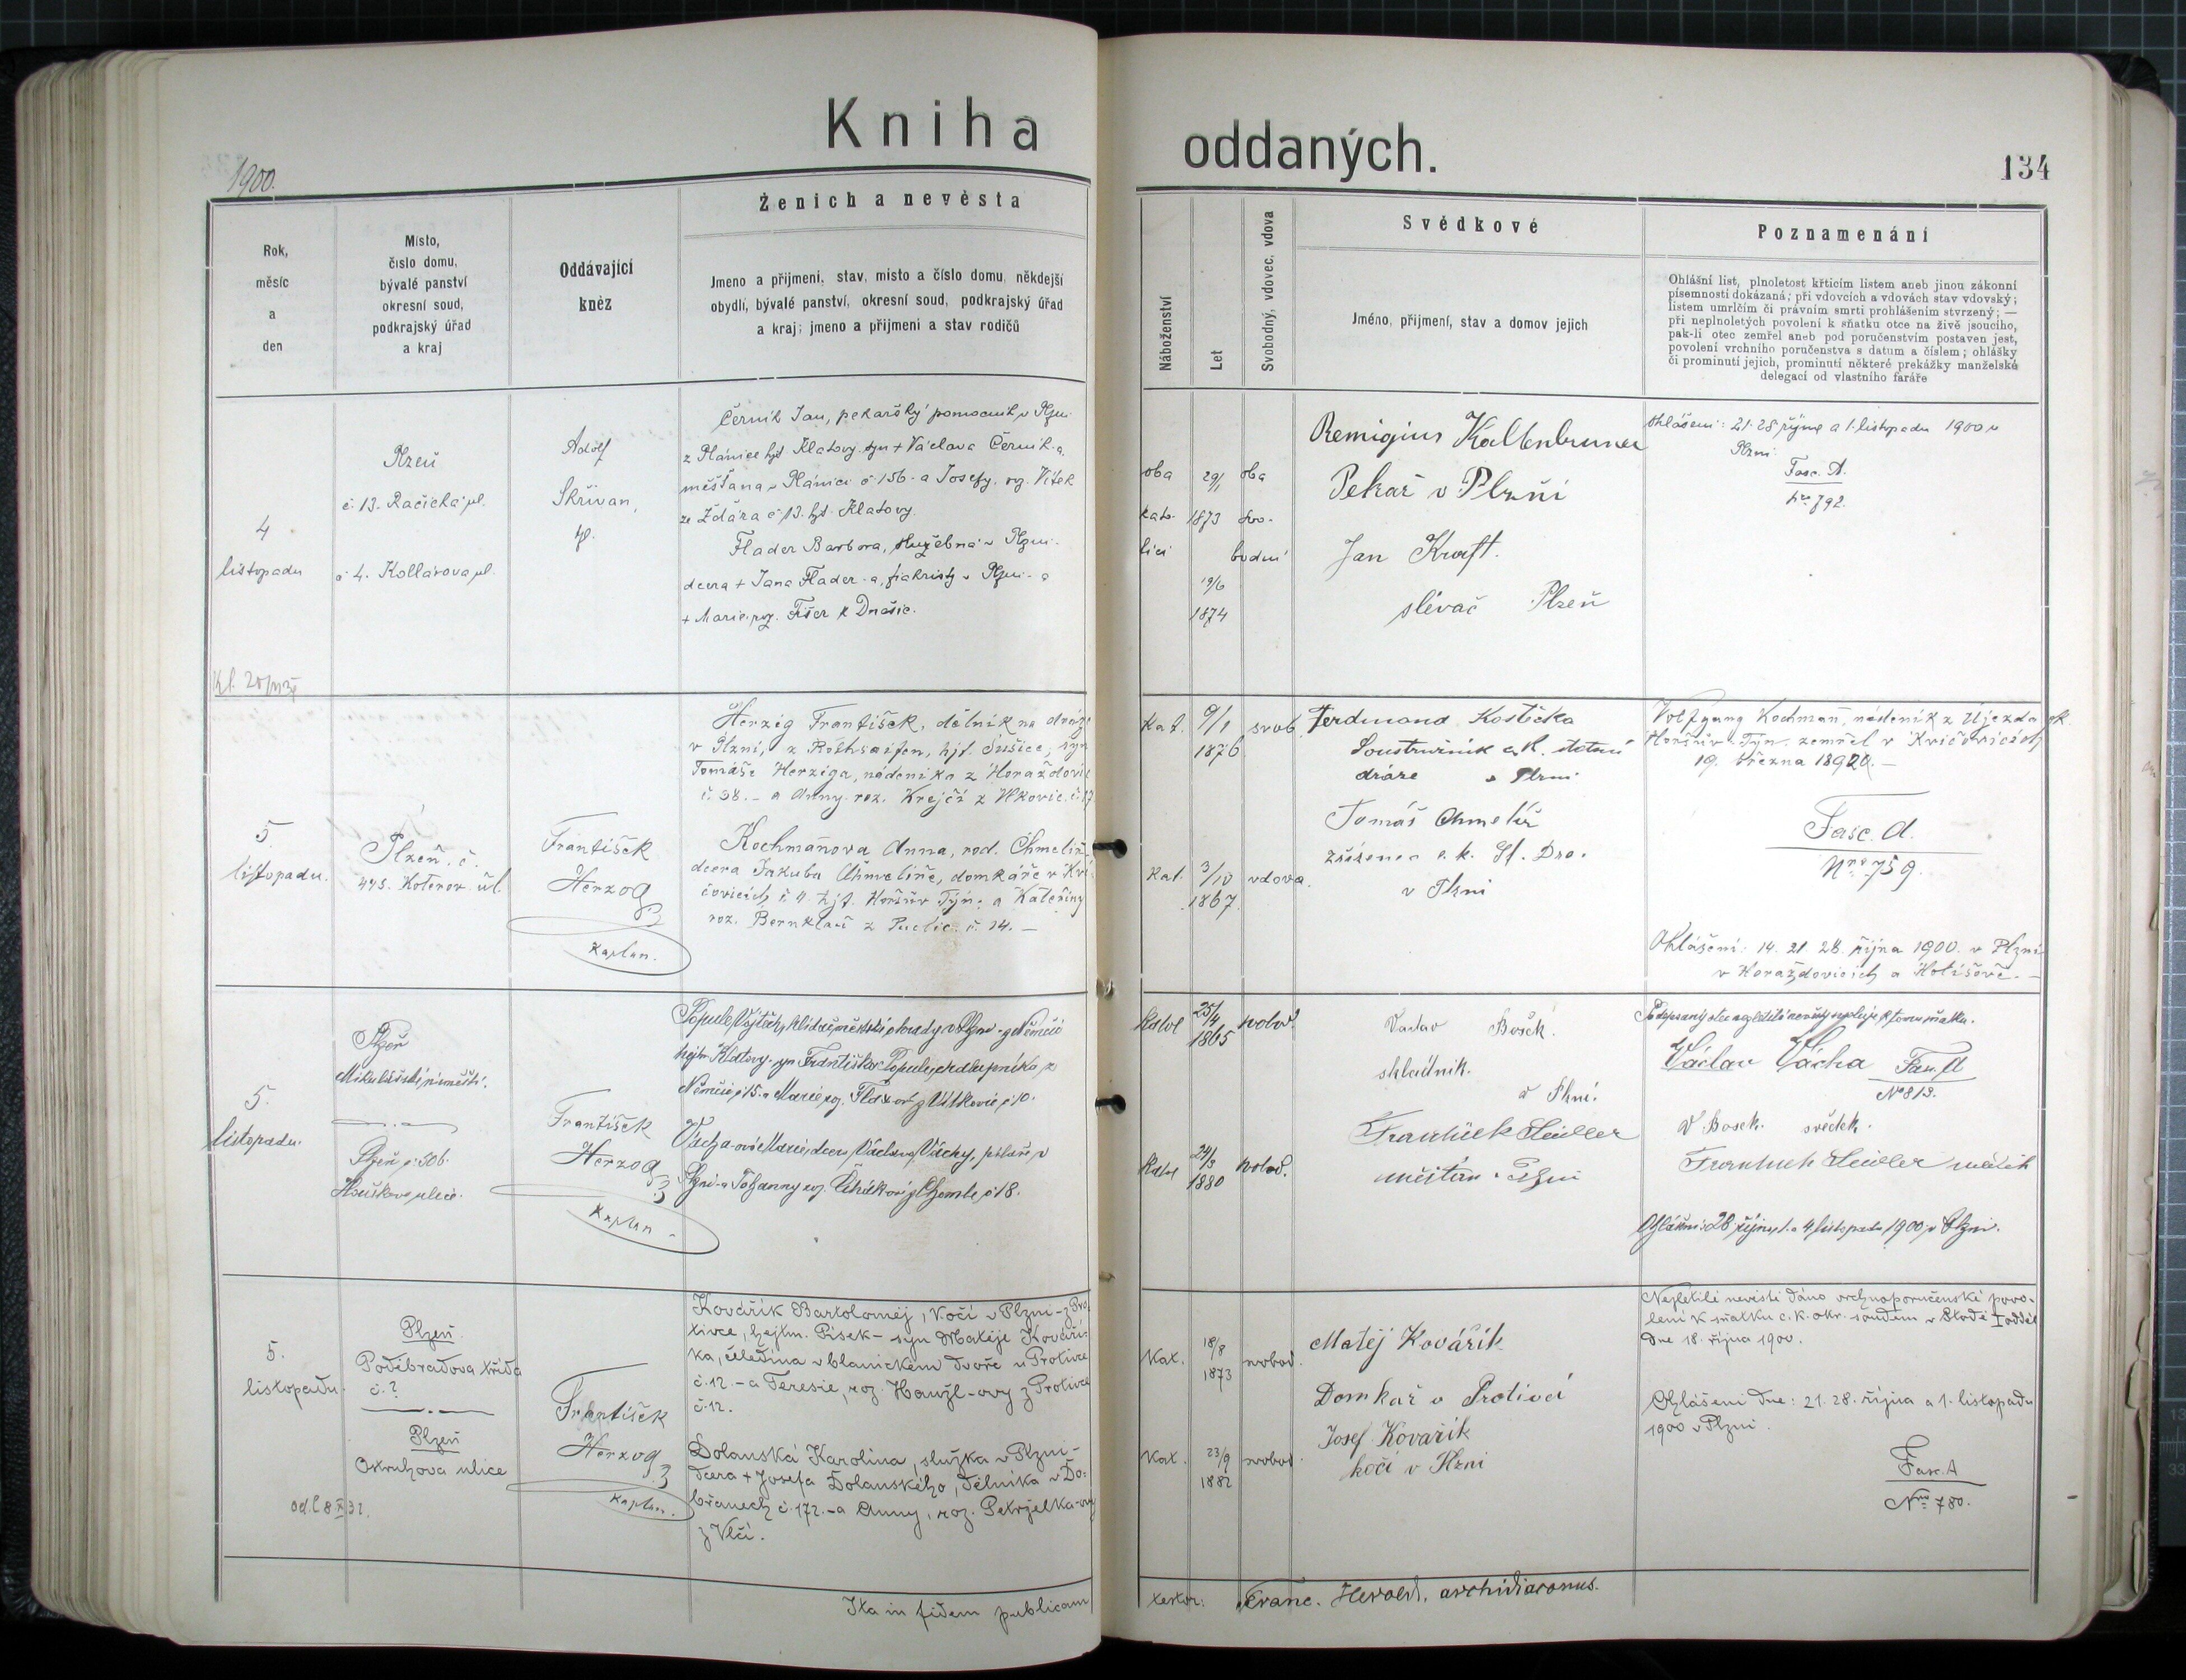 Kniha oddaných.
1900.
134
Rok,
měsíc
a
den
Místo,
číslo domu,
bývalé panství
okresní soud,
podkrajský úřad
a kraj
Oddávající
kněz
Ženich a nevěsta
Jmeno a přijmeni, stav, místo a číslo domu, někdejší
obydlí, bývalé panství, okresní soud, podkrajský úřad
a kraj; jmeno a přijmeni a stav rodičů
Náboženství
Let
Svobodný, vdovec, vdova
Svědkové
Jméno, přijmení, stav a domov jejich
Poznamenání
Ohlášní list, plnoletost křticím listem aneb jinou zákonní
písemností dokázaná; při vdovcích a vdovách stav vdovský;
listem umrlčím či právním smrti prohlášením stvrzený; —
při neplnoletých povolení k sňatku otce na živě jsoucího,
pak-li otec zemřel aneb pod poručenstvím postaven jest,
povolení vrchního poručenstva s datum a číslem; ohlášky
či prominutí jejich, prominutí některé prekážky manželské
delegací od vlastního faráře
4
listopadu
Plzeň
č. 13. Račická ul.
č 4. Kollárova ul.
Adolf
Skřivan,
Černík Jan, pekařský pomocník v Plzni
z Plánice hjt Klatovy syn + Václava Černík-a,
měšťana v Plánici č 156 - a Josefy, roz. Vítek
ze Ždára č 13. hjt. Klatovy.
Flader Barbora, služebná v Plzni-
dcera + Jana Flader-a, v Plzni - a
+ Marie roz. Fišer z Dnešic.
oba
kato-
líci
29/1
1873
19/6
1874
oba
svo-
bodní
Remigius Kaltenbrunner
Pekař v Plzni
Jan Kraft.
slévač Plzeň
Ohlášení: 21. 28 října a 1. listopadu 1900 v
Plzni
Fasc. A.
Nro 792.
5.
listopadu.
Plzeň. č.
Koterov. ul.
František
Herzog
Kaplan.
Herzig František, dělník na dráze
v Plzni, z Rothsaifen, hjt. Sušice, syn
Tomáše Herziga, nádeníka z Horažďovic
č. 38. - a Anny roz. Krejčí z
Kochmaňova Anna, rod. Chmelíř-
dcera Jakuba Chmelíře, domkáře v Kvi-
čovicích č. 4 hjt. Horšův Týn: a Kateřiny
roz. Bernklau z Puclic č. 14. —
Kat.
9/1
1876
svob.
Kat.
3/10
1867.
vdova.
Ferdinand Kostečka
Soustružník c. k. státní
dráze v Plzni
Tomáš Chmelíř
zřízenec c. k. St. Dra.
v Plzni
Wolfgang Kochmaň, nádeník z Újezda ok.
Horšův-Týn. zemřel v Kvíčovicích
19. března
Fasc. A.
Nro 759.
Ohlášení: 14. 21. 28. října 1900. v Plzni
v Horažďovicích a Holišově. —
5.
listopadu.
Plzeň
Mikulášské náměstí.
Plzeň č: 506.
Houškova ulice.
František
Herzog
Kaplan
Popule Vojtěch, hlídač městské v Plzni - z Němčic
hejtm. Klatovy - syn Františka Popule, chalupníka z
Němčic č 15. a Marie roz.
Vácha-ová Marie, dcera Václava Váchy, v
Plzni - a Johanny roz. č 18.
Katol
25/4
1865
svobod.
Katol
24/3
1880
svobod.
Vaclav Bošek.
skladník.
v Plzni.
František Seidler
měšťan v Plzni
Podepsaný otec nezletilé nevěsty svoluje k tomu sňatku.
Václav Vácha
Fasc. A
No 813.
V Bosek. svědek.
František Seidler svědek
Ohlášení: 28 října, 1. a 4 listopadu 1900, v Plzni.
5.
listopadu.
od. 8 X 32.
Plzeň.
Poděbradova třída
č.?
Plzeň
Okruhova ulice
František
Herzog
Kaplan.
Kovářík Bartoloměj, kočí v Plzni - z Pro-
tivce, hejtm. Písek - syn Matěje Kováří-
ka, čeledína v blanickém dvoře u Protivce
č. 12. - a Teresie, roz. Hanzl-ovy z Protivce
č. 12.
Dolanská Karolina, služka v Plzni -
dcera + Josefa Dolanského, dělníka v Do-
břanech č. 172. - a Anny, roz. Petrželka-ovy
z Vlčí.
Kat.
18/8
1873
svobod.
Kat.
23/9
1882
svobod.
Matěj Kovářik
Domkař v Protivci
Josef Kovařik
kočí v Plzni
Nezletilé nevěstě dáno vrchnoporučenské povo-
lení k sňatku c. k. okr. soudem v Stodě I odděl.
dne 18. října 1900.
Ohlášení dne: 21. 28. října a 1. listopadu
1900 v Plzni.
Fasc. A
Nro 780.
Ita in fidem publicam testor: Franc. Herold, archidiaconus.